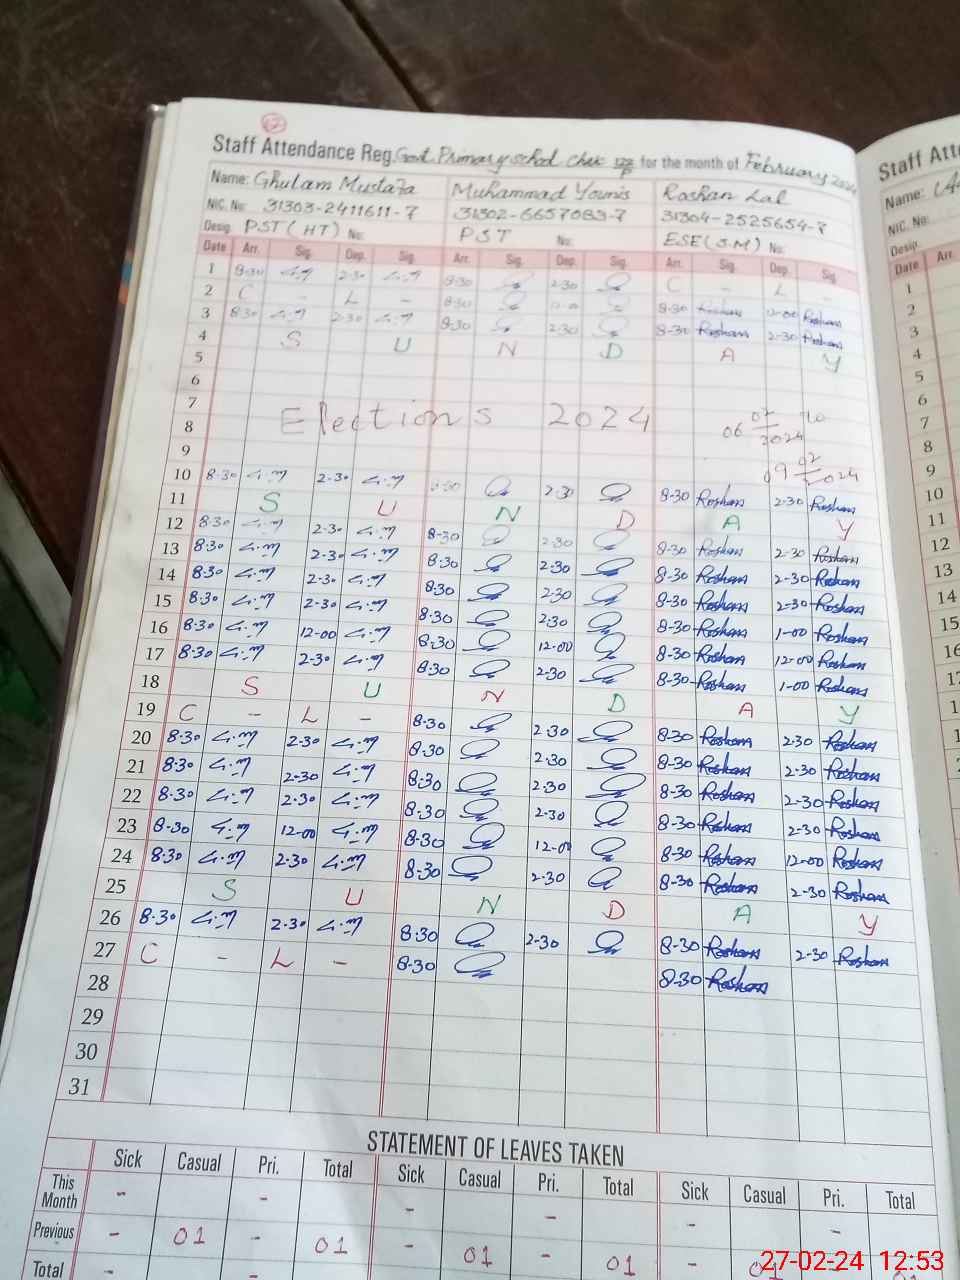 Staff Attendance Reg. Govt. Primary school Chak for the month of February 2024
Name: Ghulam Mustafa Muhammad Younis Roshan Lal
NIC. No: 31303-2411611-7 31302-6657083-7 31304-2525654-7
Desig. PST (HT) No: PST No: ESE(S.M) No:
Date Arr. Sig. Dep. Sig. Arr. Sig. Dep. Sig. Arr. Sig. Dep. Sig.
1 8-30 G.M 2-30 G.M 8-30 2-30 C - L -
2 C - L - 8-30 12-00 8-30 Roshan 12-00 Roshan
3 8-30 G.M 2-30 G.M 8-30 2-30 8-30 Roshan 2-30 Roshan
4 S U N D A Y
5
6
7
8 Elections 2024 06 02 2024 to
9 09 02 2024
10 8-30 G.M 2-30 G.M 8-30 2-30 8-30 Roshan 2-30 Roshan
11 S U N D A Y
12 8-30 G.M 2-30 G.M 8-30 2-30 8-30 Roshan 2-30 Roshan
13 8-30 G.M 2-30 G.M 8-30 2-30 8-30 Roshan 2-30 Roshan
14 8-30 G.M 2-30 G.M 8-30 2-30 8-30 Roshan 2-30 Roshan
15 8-30 G.M 2-30 G.M 8-30 2-30 8-30 Roshan 1-00 Roshan
16 8-30 G.M 12-00 G.M 8-30 12-00 8-30 Roshan 12-00 Roshan
17 8-30 G.M 2-30 G.M 8-30 2-30 8-30 Roshan 1-00 Roshan
18 S U N D A Y
19 C - L - 8-30 2-30 8-30 Roshan 2-30 Roshan
20 8-30 G.M 2-30 G.M 8-30 2-30 8-30 Roshan 2-30 Roshan
21 8-30 G.M 2-30 G.M 8-30 2-30 8-30 Roshan 2-30 Roshan
22 8-30 G.M 2-30 G.M 8-30 2-30 8-30 Roshan 2-30 Roshan
23 8-30 G.M 12-00 G.M 8-30 12-00 8-30 Roshan 12-00 Roshan
24 8-30 G.M 2-30 G.M 8-30 2-30 8-30 Roshan 2-30 Roshan
25 S U N D A Y
26 8-30 G.M 2-30 G.M 8-30 2-30 8-30 Roshan 2-30 Roshan
27 C - L - 8-30 8-30 Roshan
28
29
30
31
STATEMENT OF LEAVES TAKEN
Sick Casual Pri. Total Sick Casual Pri. Total Sick Casual Pri. Total
This Month - - - - - -
Previous - 01 - 01 - 01 - 01 - 01 -
Total - -
Staff Att
Name:
NIC. No:
Desig.
Date Arr.
1
2
3
4
5
6
7
8
9
10
11
12
13
14
15
16
27-02-24 12:53